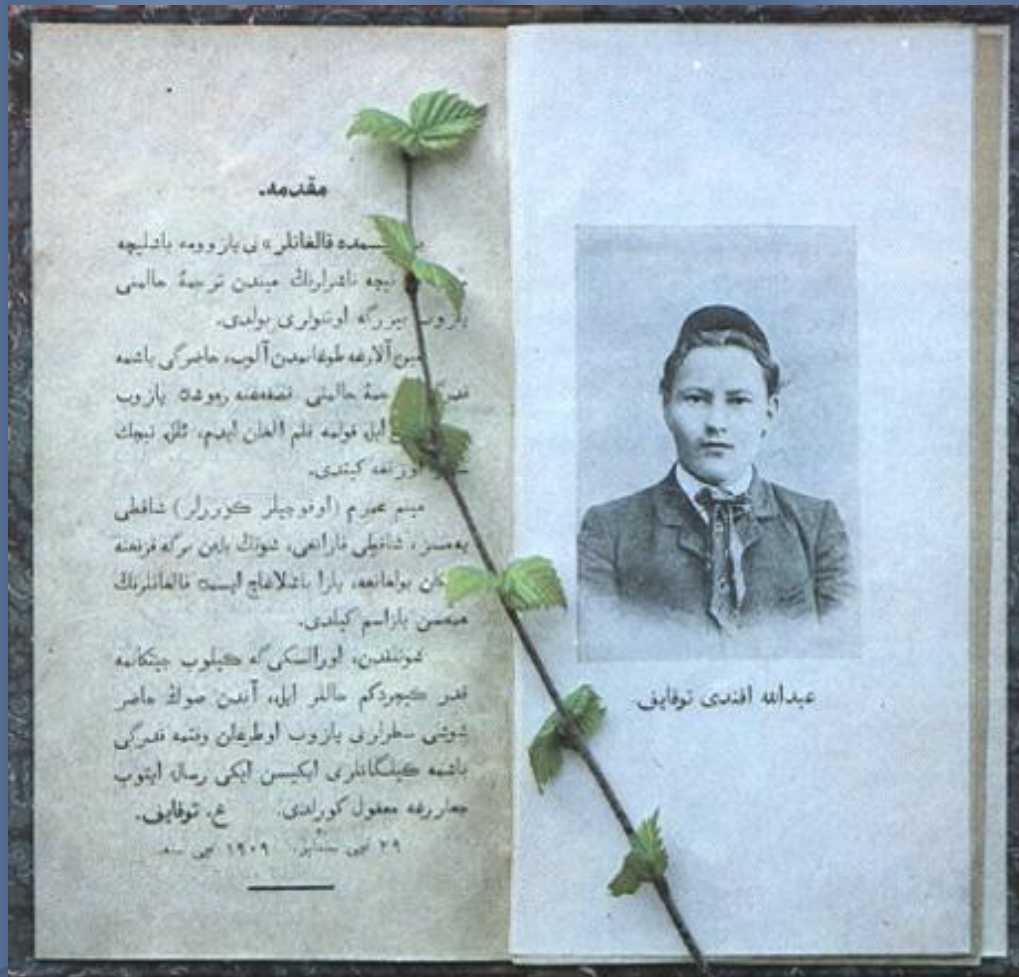 مقدمه.
قالغانلر» نی یازوومه باشلیچه
نیچه ناشرلرنڭ میندن ترجمهٔ حالیمنی
بیررگه اوتنولری بولدی.
آلارغه طوغانمدن آلوب، حاضرگی باشمه
حالیمنی یازوب
ایله قولیمه قلم آلغان ایدم، لکن نیچك
کیتدی.
مینم عمرم (اوقوچیلر کوررلر) شاقطی
شاقطی قارانغی، شونڭ بلن برگه
بولغانغه، یازا باشلاغاچ ایسمده قالغانلرنڭ
همه‌سن یازاسم کیلدی.
شوننقدن، اورالسکی گه کیلوب جیتکانمه
قدر کیچردکم حاللر ایله، آندن صوڭ حاضر
شوشی سطرلرنی یازوب اوطرغان وقتمه قدرگی
باشمه کیلگانلرنی ایکیسن ایکی رساله ایتوب
چغاررغه معقول کورلدی. ع. توقایف.
۲۹ نچی سنتابر. ۱۹۰۹ نچی سنه.
عبدالله افندی توقایف